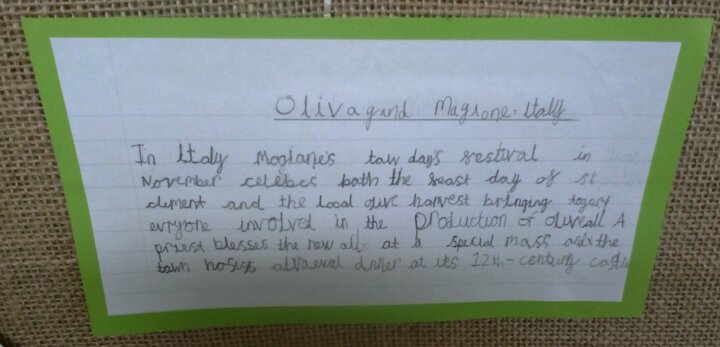 Olivagand Magione, Italy
In Italy Moglane's taw day's festival in
November celebes both the feast day of st
clement and the local olive harvest bringing togery
evryone involved in the production of oliveall A
priest blesses the new oil at a special mass and the
town dinner at its 12th-century castle